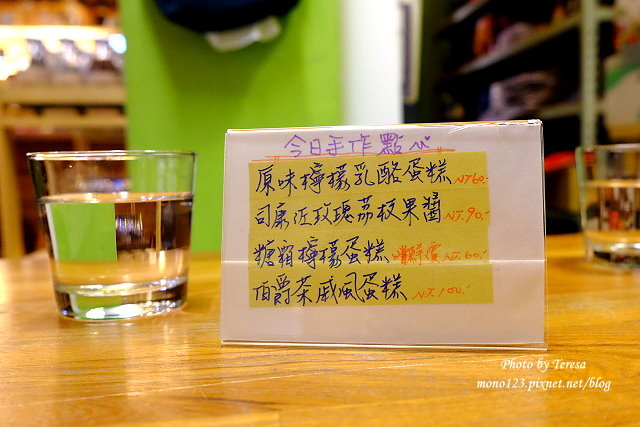 今日手作點心
原味檸檬乳酪蛋糕 NT60.-
司康佐玫瑰荔枝果醬 NT.90.-
糖霜檸檬蛋糕 嚐鮮價 NT.60.-
伯爵茶戚風蛋糕 NT.100.-
Photo by Teresa
mono123.pixnet.net/blog